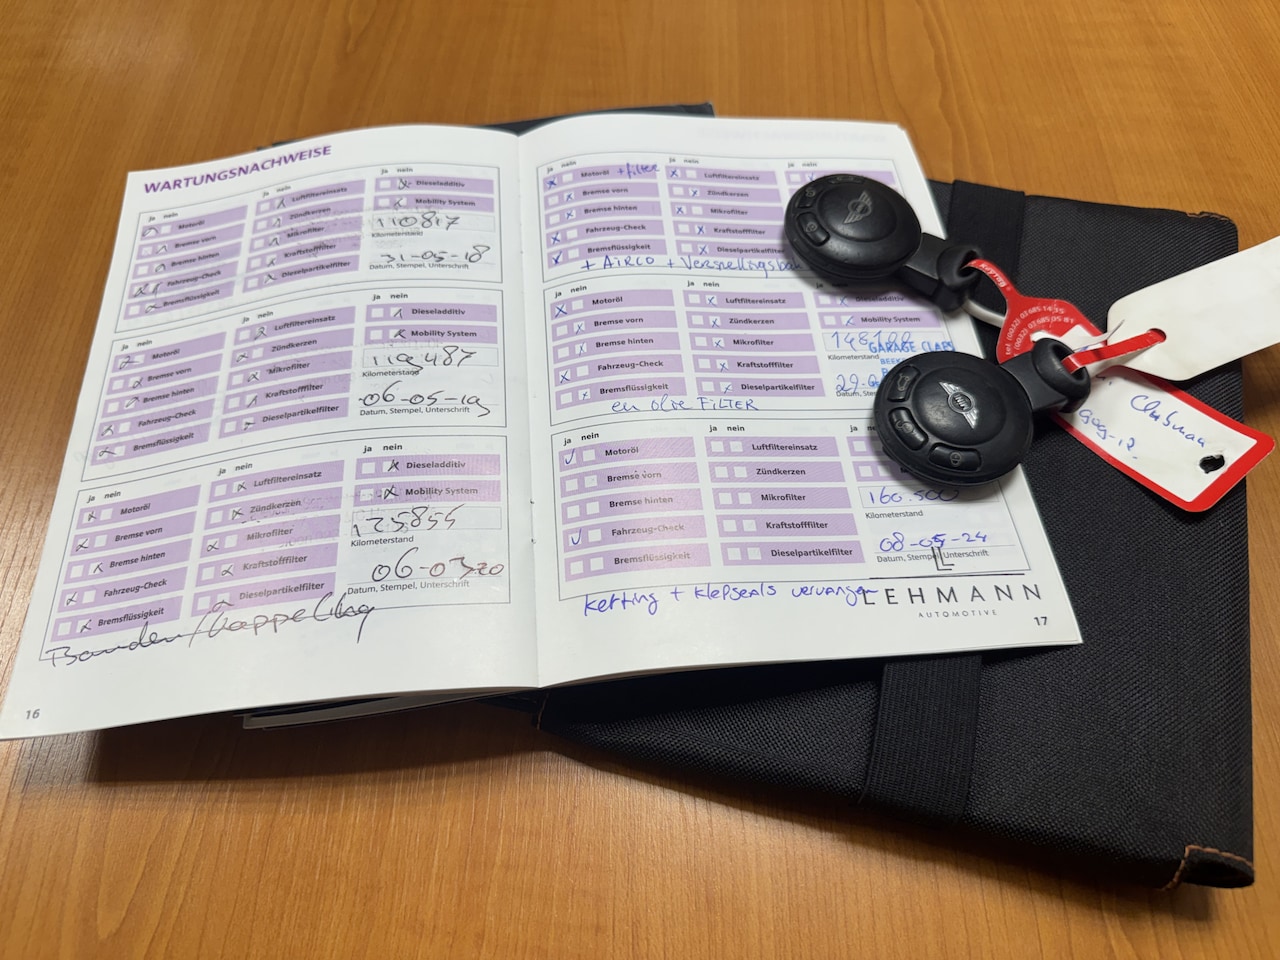 WARTUNGSNACHWEISE
ja nein
Motoröl
Bremse vorn
Bremse hinten
Fahrzeug-Check
Bremsflüssigkeit
ja nein
Luftfiltereinsatz
Zündkerzen
Mikrofilter
Kraftstofffilter
Dieselpartikelfilter
ja nein
Dieseladditiv
Mobility System
110817
Kilometerstand
31-05-18
Datum, Stempel, Unterschrift
ja nein
Motoröl
Bremse vorn
Bremse hinten
Fahrzeug-Check
Bremsflüssigkeit
ja nein
Luftfiltereinsatz
Zündkerzen
Mikrofilter
Kraftstofffilter
Dieselpartikelfilter
ja nein
Dieseladditiv
Mobility System
119487
Kilometerstand
06-05-19
Datum, Stempel, Unterschrift
ja nein
Motoröl
Bremse vorn
Bremse hinten
Fahrzeug-Check
Bremsflüssigkeit
ja nein
Luftfiltereinsatz
Zündkerzen
Mikrofilter
Kraftstofffilter
Dieselpartikelfilter
ja nein
Dieseladditiv
Mobility System
Kilometerstand
06-03-20
Datum, Stempel, Unterschrift
16
ja nein
Motoröl + filter
Bremse vorn
Bremse hinten
Fahrzeug-Check
Bremsflüssigkeit
ja nein
Luftfiltereinsatz
Zündkerzen
Mikrofilter
Kraftstofffilter
Dieselpartikelfilter
ja nein
+ AIRCO + Versnellingsbak
ja nein
Motoröl
Bremse vorn
Bremse hinten
Fahrzeug-Check
Bremsflüssigkeit
ja nein
Luftfiltereinsatz
Zündkerzen
Mikrofilter
Kraftstofffilter
Dieselpartikelfilter
ja
Dieseladditiv
Mobility System
GARAGE CLAES
en olie FILTER
ja nein
Motoröl
Bremse vorn
Bremse hinten
Fahrzeug-Check
Bremsflüssigkeit
ja nein
Luftfiltereinsatz
Zündkerzen
Mikrofilter
Kraftstofffilter
Dieselpartikelfilter
ja
160.500
Kilometerstand
08-05-24
Datum, Stempel, Unterschrift
ketting + klepseals vervangen
LEHMANN
AUTOMOTIVE
17
MINI
Clubman